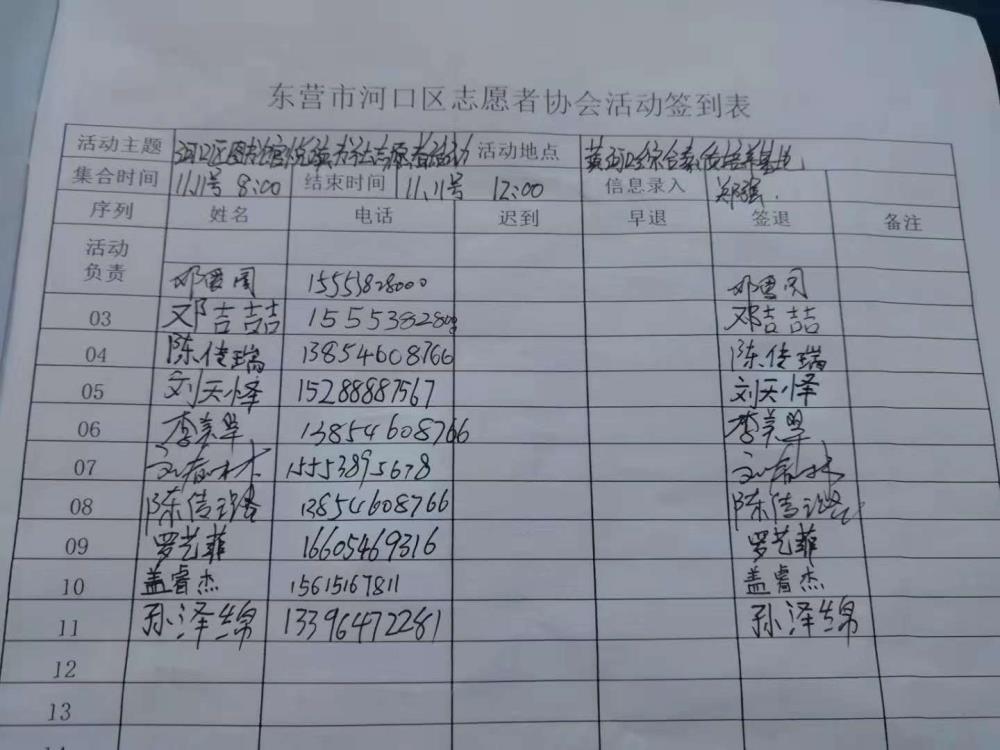 东营市河口区志愿者协会活动签到表
活动主题 河口区图书馆悦读书社志愿者活动 活动地点 黄河口综合素质培养基地
集合时间 11.11号 8:00 结束时间 11.11号 12:00 信息录入 郑强.
序列 姓名 电话 迟到 早退 签退 备注
活动
负责 15553828000
03 邓吉喆 155538280 邓吉喆
04 陈传瑞 13854608766 陈传瑞
05 刘天怿 15288887567 刘天怿
06 李美 13854608766 李美
07 刘春林 15553895678 刘春林
08 陈传璐 13854608766 陈传璐
09 罗艺菲 16605469316 罗艺菲
10 盖睿杰 15615167811 盖睿杰
11 孙泽锦 13396472281 孙泽锦
12
13